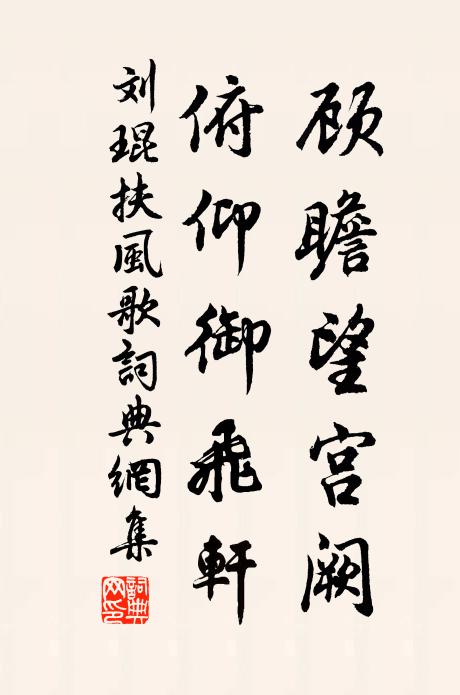 顾瞻望宫阙
俯仰御飛軒
刘琨扶風歌詞典網集
詞典網印